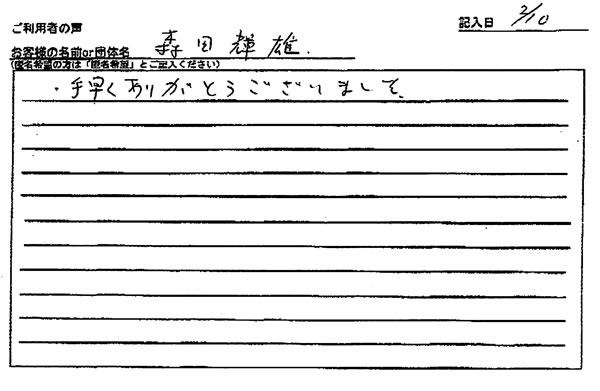 ご利用者の声
記入日 2/10
お客様の名前or団体名 森田輝雄.
(匿名希望の方は「匿名希望」とご記入ください)
・手早くありがとうございました